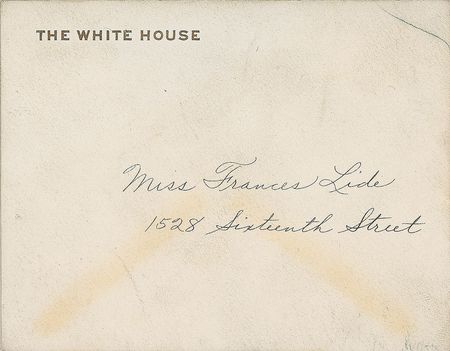 THE WHITE HOUSE
Miss Frances Lide
1528 Sixteenth Street